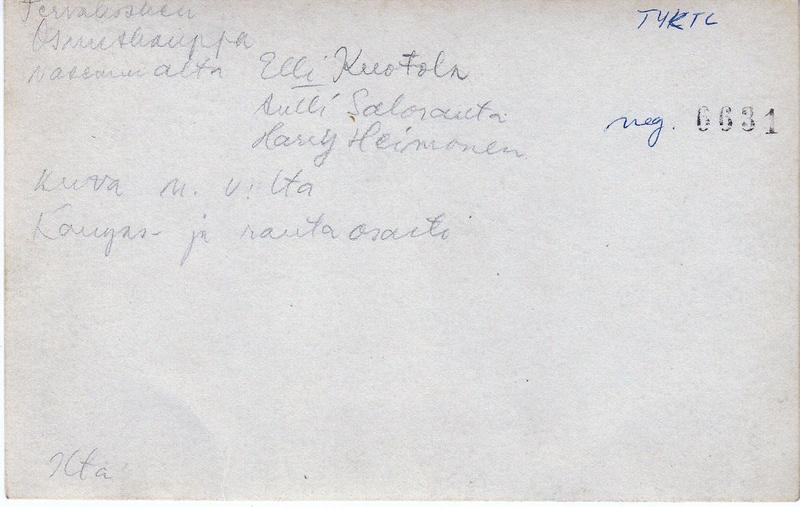 Tervakosken
Osuuskauppa
vasemmalta Elli Kuotola
Aulli Salosranta
Harry Heimonen
Kuva n. v:lta
Kangas- ja rautaosasto
Ilta
TYKTL
neg. 6631